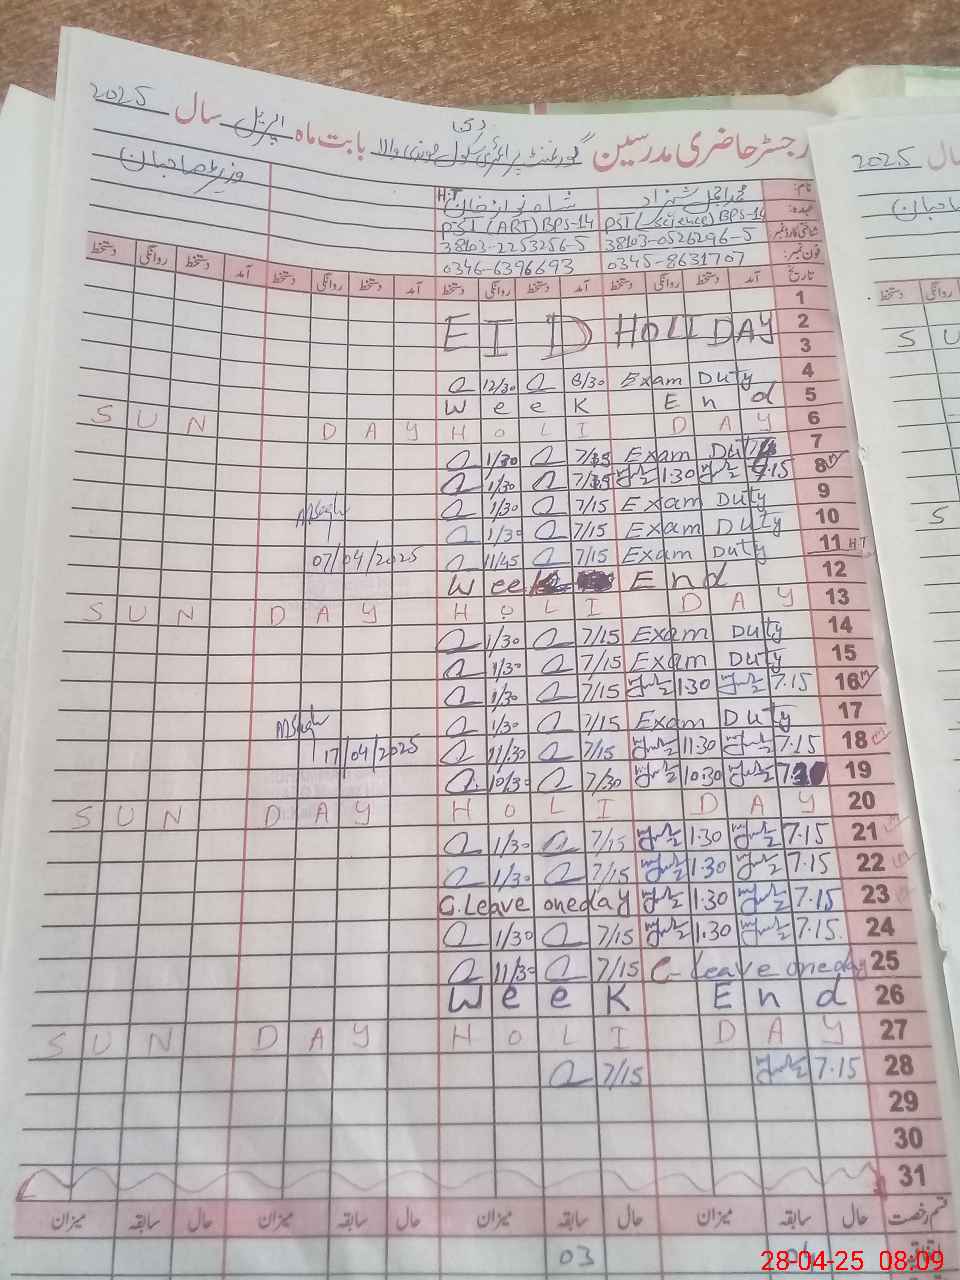 رجسٹر حاضری مدرسین گورنمنٹ پرائمری سکول بابت ماہ اپریل سال 2025
وزیٹر صاحبان
نام:
H.T شاہ نواز خان
عہدہ: PST (Science) BPS-14 PST (ART) BPS-14
شناختی کارڈ نمبر 38103-0526296-5 38103-2253256-5
فون نمبر: 0345-8631707 0346-6396693
تاریخ آمد دستخط روانگی دستخط آمد دستخط روانگی دستخط آمد دستخط روانگی دستخط آمد دستخط روانگی دستخط
1
EID HOLIDAY 2
3
12/30 8/30 Exam Duty 4
Week End 5
SUN DAY HOLI DAY 6
1/30 Exam Duty 7
1/30 1:30 7.15 8
1/30 7/15 Exam Duty 9
1/30 7/15 Exam Duty 10
07/04/2025 11/45 7/15 Exam Duty 11 HT
Week End 12
SUN DAY HOLI DAY 13
1/30 7/15 Exam Duty 14
1/30 7/15 Exam Duty 15
1/30 7/15 1:30 7.15 16
1/30 7/15 Exam Duty 17
17/04/2025 11/30 7/15 11:30 7.15 18
10/30 7/30 10:30 19
SUN DAY HOLI DAY 20
1/30 7/15 1:30 7.15 21
1/30 7/15 1:30 7.15 22
C. Leave oneday 1:30 7.15 23
1/30 7/15 1:30 7.15 24
11/30 7/15 C- Leave oneday 25
Week End 26
SUN DAY HOLI DAY 27
7/15 7.15 28
29
30
31
قسم رخصت حال سابقہ میزان حال سابقہ میزان حال سابقہ میزان حال سابقہ میزان
03
2025
SU
S
28-04-25 08:09